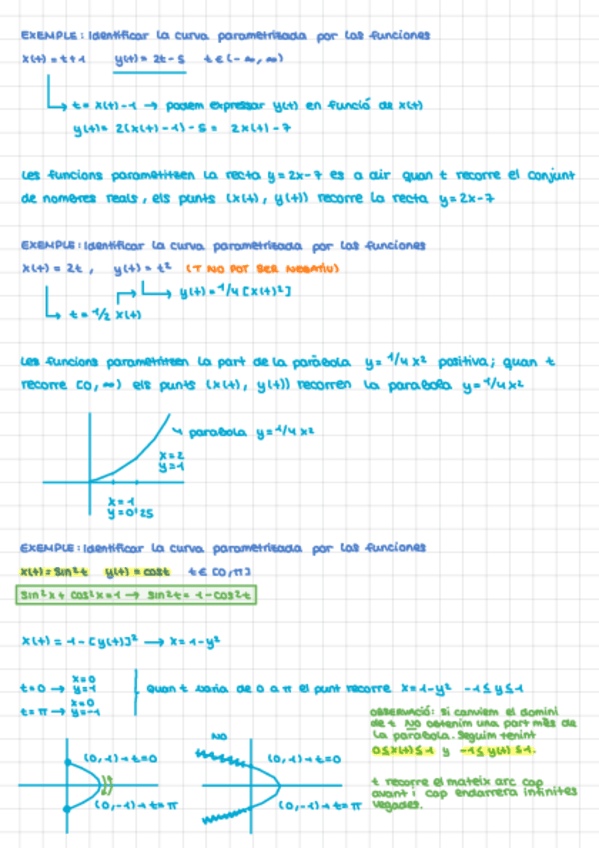 EXEMPLE: Identificar la curva parametritzada por las funciones
x(t) = t+1 y(t) = 2t-5 t ∈ (-∞, ∞)
t = x(t)-1 → podem expressar y(t) en funció de x(t)
y(t) = 2(x(t)-1)-5 = 2x(t)-7
Les funcions parametitzen la recta y=2x-7 es a dir quan t recorre el conjunt
de nombres reals, els punts (x(t), y(t)) recorre la recta y=2x-7
EXEMPLE: Identificar la curva parametrisada por las funciones
x(t) = 2t, y(t) = t² (T NO POT SER NEGATIU)
y(t) = 1/4 [x(t)²]
t = 1/2 x(t)
Les funcions parametritzen la part de la paràbola y = 1/4 x² positiva; quan t
recorre [0, ∞) els punts (x(t), y(t)) recorren la parabola y=1/4 x²
parabola y=1/4 x²
x=2
y=1
x=1
y=0'25
EXEMPLE: Identificar la curva parametrisada por las funciones
x(t) = sin²t y(t) = cost t ∈ [0,π]
sin²x + cos²x = 1 → sin²t = 1-cos²t
x(t) = 1-[y(t)]² → x = 1-y²
t=0 → x=0 y=1
t=π → x=0 y=-1
Quan t varia de 0 a π el punt recorre x=1-y² -1≤y≤1
OBSERVACIÓ: Si canviem el domini
de t NO obtenim una part més de
la parabola. Seguim tenint
0≤x(t)≤1 y -1≤y(t)≤1.
t recorre el mateix arc cap
avant i cap endarrera infinites
vegades.
(0,1) → t=0
(0,-1) → t=π
NO
(0,1) → t=0
(0,-1) → t=π